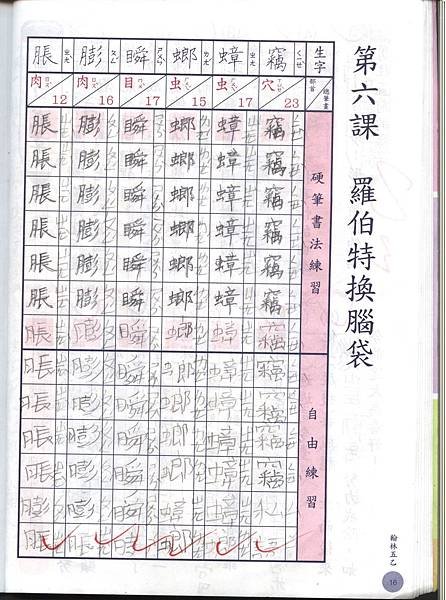 第六課　羅伯特換腦袋
生字 部首 總筆畫 硬筆書法練習 自由練習
竊 ㄑㄧㄝˋ 穴 ㄒㄩㄝˋ 23 竊 竊 竊 竊 竊 竊 竊 竊 竊 竊 竊
蟑 ㄓㄤ 虫 ㄏㄨㄟˇ 17 蟑 蟑 蟑 蟑 蟑 蟑 蟑 蟑 蟑 蟑 蟑
螂 ㄌㄤˊ 虫 ㄏㄨㄟˇ 15 螂 螂 螂 螂 螂 螂 螂 螂 螂 螂 螂
瞬 ㄕㄨㄣˋ 目 ㄇㄨˋ 17 瞬 瞬 瞬 瞬 瞬 瞬 瞬 瞬 瞬 瞬 瞬
膨 ㄆㄥˊ 肉 ㄖㄡˋ 16 膨 膨 膨 膨 膨 膨 膨 膨 膨 膨 膨 膨
脹 ㄓㄤˋ 肉 ㄖㄡˋ 12 脹 脹 脹 脹 脹 脹 脹 脹 脹 脹 脹 膨 脹
翰林五乙
16